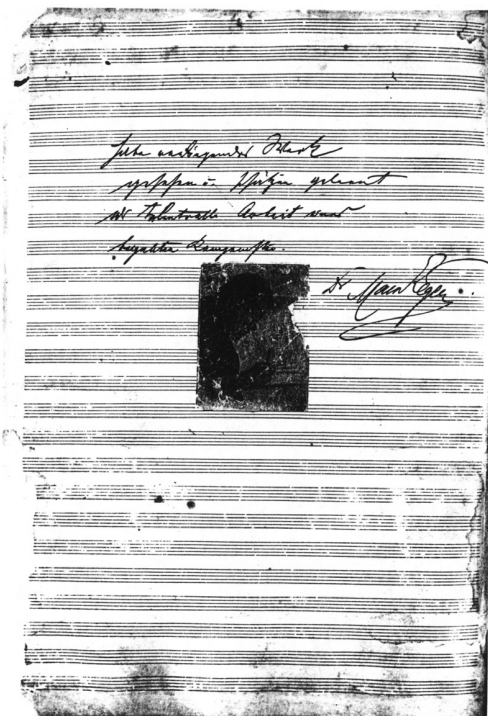 habe vorliegendes Werk
gesehen u. schätzen gelernt
als talentvolle Arbeit eines
begabten Komponisten.
Dr Max Reger